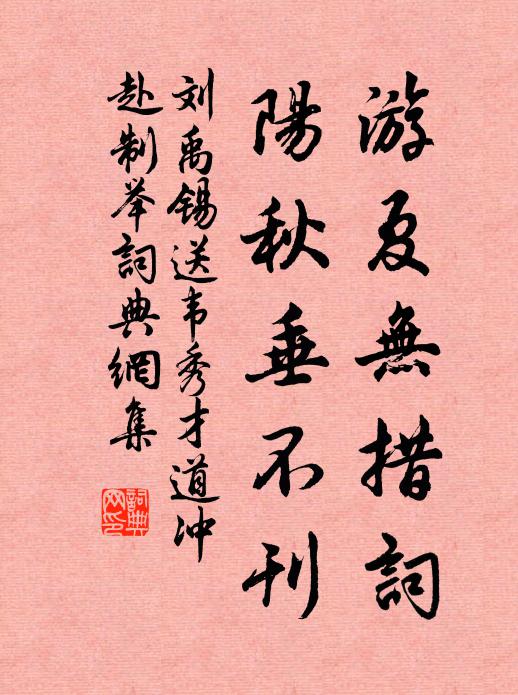 游夏無措詞
陽秋垂不刊
刘禹锡送韦秀才道冲
赴制举詞典網集
詞典網印